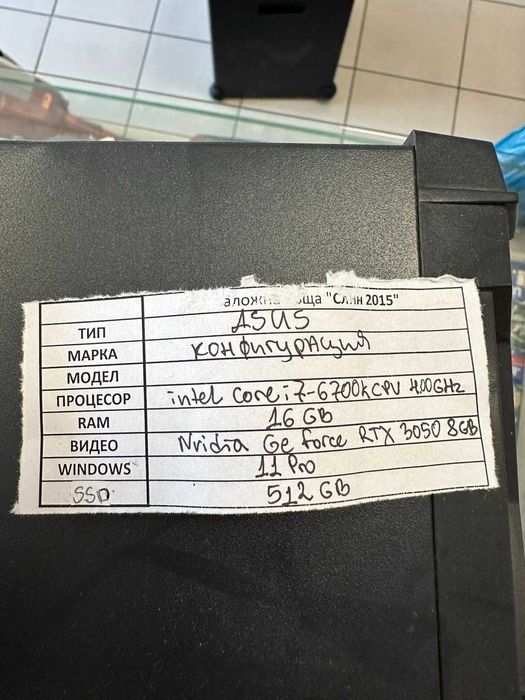 аложна ъща "Слин 2015"
ТИП ASUS
МАРКА конфигурация
МОДЕЛ
ПРОЦЕСОР intel Core i7-6700k CPU 4.00GHz
RAM 16 GB
ВИДЕО Nvidia Ge force RTX 3050 8GB
WINDOWS 11 Pro
SSD 512 GB